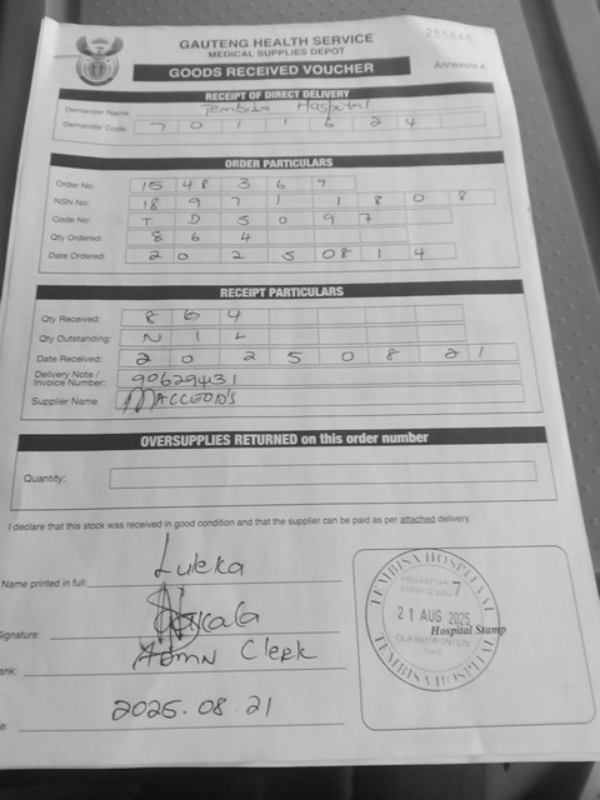 GAUTENG HEALTH SERVICE
MEDICAL SUPPLIES DEPOT
Annexure A
GOODS RECEIVED VOUCHER
RECEIPT OF DIRECT DELIVERY
Demander Name: Tembisa Hospital
Demander Code: 7 0 1 1 6 2 4
ORDER PARTICULARS
Order No: 15 48 3 6 9
NSN No: 18 9 7 1 1 8 0 8
Code No: T D 5 0 9 7
Qty Ordered: 8 6 4
Date Ordered: 2 0 2 5 08 1 4
RECEIPT PARTICULARS
Qty Received: 8 6 4
Qty Outstanding: N I L
Date Received: 2 0 2 5 0 8 2 1
Delivery Note / Invoice Number: 90629431
Supplier Name MACCLEOD'S
OVERSUPPLIES RETURNED on this order number
Quantity:
I declare that this stock was received in good condition and that the supplier can be paid as per attached delivery.
Name printed in full: Luleka
Signature:
ank: Admn Clerk
e: 2025.08.21
TEMBISA HOSPITAAL
7
21 AUG 2025
Hospital Stamp
TEMBISA HOSPITAL